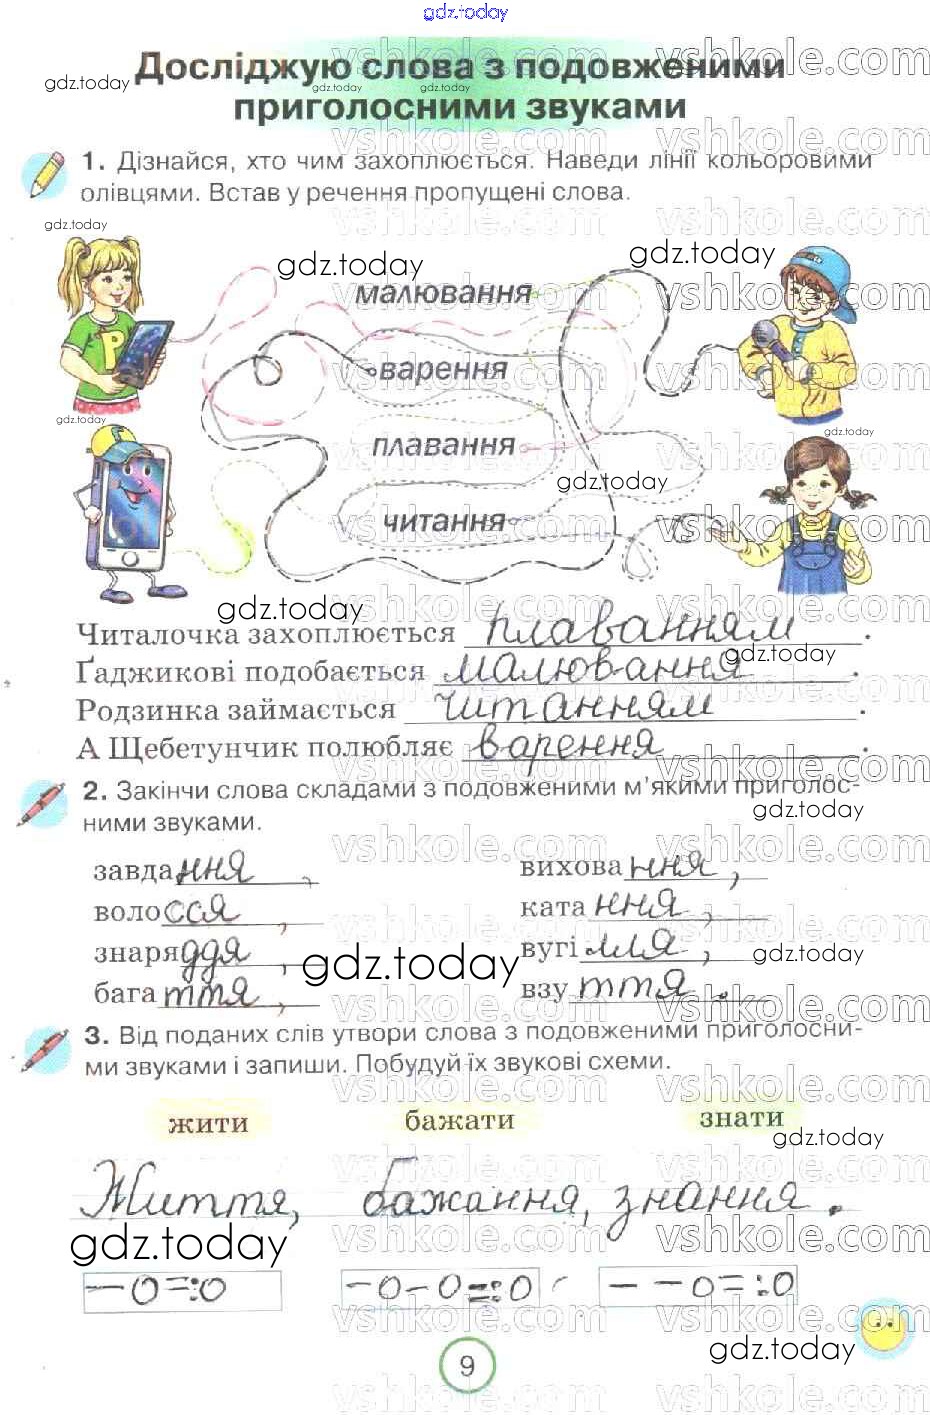 gdz.today
Досліджую слова з подовженими
приголосними звуками
1. Дізнайся, хто чим захоплюється. Наведи лінії кольоровими
олівцями. Встав у речення пропущені слова.
малювання
варення
плавання
читання
Читалочка захоплюється плаванням.
Ґаджикові подобається малювання.
Родзинка займається читанням.
А Щебетунчик полюбляє варення.
2. Закінчи слова складами з подовженими м'якими приголос-
ними звуками.
завдання, вихования,
волосся, катання,
знаряддя, вугілля,
багаття, взуття.
3. Від поданих слів утвори слова з подовженими приголосни-
ми звуками і запиши. Побудуй їх звукові схеми.
жити бажати знати
Життя, бажання, знання.
–о=:о –о–о=:о ––о=:о
9